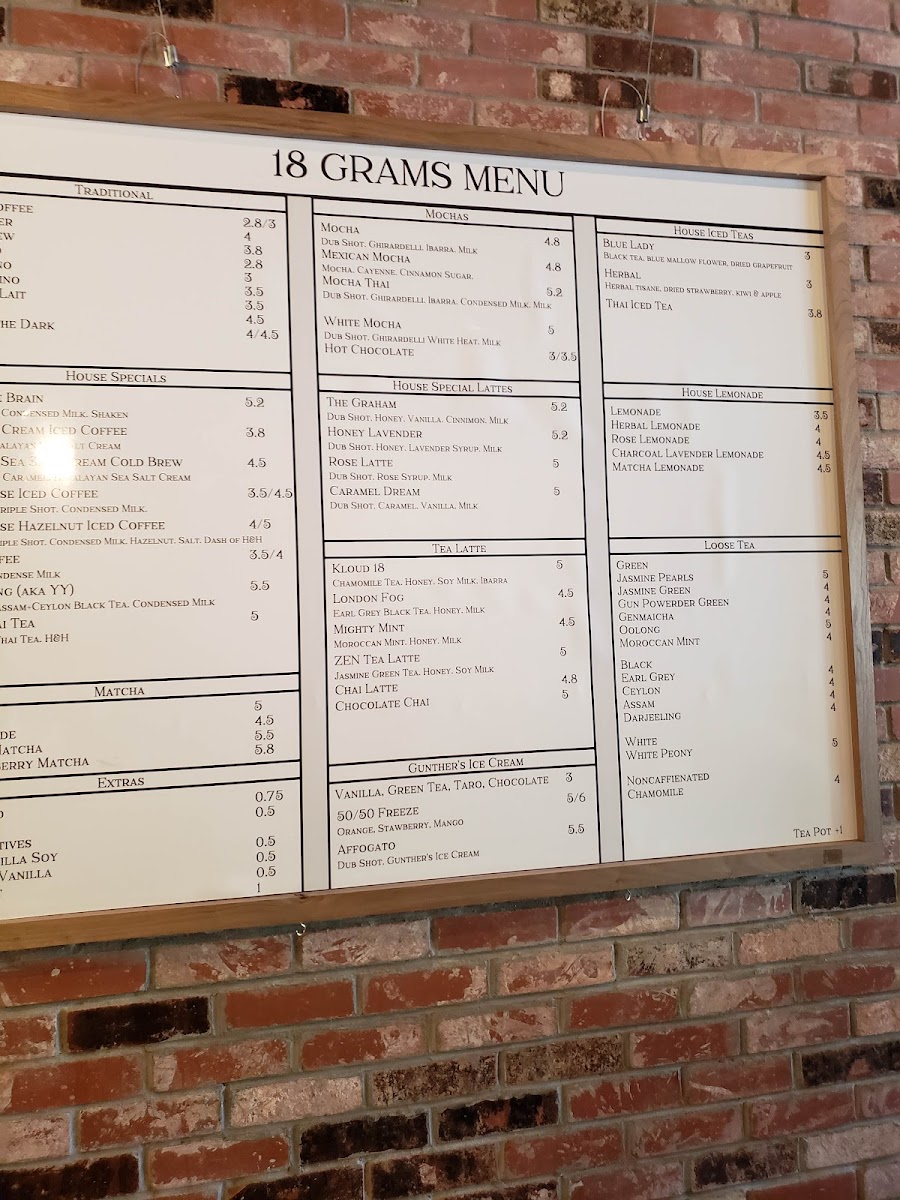 18 GRAMS MENU
TRADITIONAL
OFFEE
ER 2.8/3
EW 4
O 3.8
NO 2.8
INO 3
LAIT 3.5
3.5
THE DARK 4.5
4/4.5
HOUSE SPECIALS
BRAIN 5.2
CONDENSED MILK. SHAKEN
CREAM ICED COFFEE 3.8
ALAYAN SALT CREAM
SEA SALT CREAM COLD BREW 4.5
CARAMEL HIMALAYAN SEA SALT CREAM
SE ICED COFFEE 3.5/4.5
RIPLE SHOT. CONDENSED MILK.
SE HAZELNUT ICED COFFEE 4/5
IPLE SHOT. CONDENSED MILK. HAZELNUT. SALT. DASH OF H&H
FEE 3.5/4
NDENSE MILK
NG (AKA YY) 5.5
ASSAM-CEYLON BLACK TEA. CONDENSED MILK
AI TEA 5
THAI TEA. H&H
MATCHA
5
4.5
DE 5.5
MATCHA 5.8
ERRY MATCHA
EXTRAS
0.75
O 0.5
TIVES 0.5
ILLA SOY 0.5
VANILLA 0.5
1
MOCHAS
MOCHA 4.8
DUB SHOT. GHIRARDELLI. IBARRA. MILK
MEXICAN MOCHA 4.8
MOCHA. CAYENNE. CINNAMON SUGAR.
MOCHA THAI 5.2
DUB SHOT. GHIRARDELLI. IBARRA. CONDENSED MILK. MILK
WHITE MOCHA 5
DUB SHOT. GHIRARDELLI WHITE HEAT. MILK
HOT CHOCOLATE 3/3.5
HOUSE SPECIAL LATTES
THE GRAHAM 5.2
DUB SHOT. HONEY. VANILLA. CINNIMON. MILK
HONEY LAVENDER 5.2
DUB SHOT. HONEY. LAVENDER SYRUP. MILK
ROSE LATTE 5
DUB SHOT. ROSE SYRUP. MILK
CARAMEL DREAM 5
DUB SHOT. CARAMEL. VANILLA. MILK
TEA LATTE
KLOUD 18 5
CHAMOMILE TEA. HONEY. SOY MILK. IBARRA
LONDON FOG 4.5
EARL GREY BLACK TEA. HONEY. MILK
MIGHTY MINT 4.5
MOROCCAN MINT. HONEY. MILK
ZEN TEA LATTE 5
JASMINE GREEN TEA. HONEY. SOY MILK
CHAI LATTE 4.8
CHOCOLATE CHAI 5
GUNTHER'S ICE CREAM
VANILLA, GREEN TEA, TARO, CHOCOLATE 3
50/50 FREEZE 5/6
ORANGE, STAWBERRY, MANGO
AFFOGATO 5.5
DUB SHOT. GUNTHER'S ICE CREAM
HOUSE ICED TEAS
BLUE LADY 3
BLACK TEA, BLUE MALLOW FLOWER, DRIED GRAPEFRUIT
HERBAL 3
HERBAL TISANE, DRIED STRAWBERRY, KIWI & APPLE
THAI ICED TEA 3.8
HOUSE LEMONADE
LEMONADE 3.5
HERBAL LEMONADE 4
ROSE LEMONADE 4
CHARCOAL LAVENDER LEMONADE 4.5
MATCHA LEMONADE 4.5
LOOSE TEA
GREEN
JASMINE PEARLS 5
JASMINE GREEN 4
GUN POWERDER GREEN 4
GENMAICHA 4
OOLONG 5
MOROCCAN MINT 4
BLACK
EARL GREY 4
CEYLON 4
ASSAM 4
DARJEELING 4
WHITE
WHITE PEONY 5
NONCAFFIENATED
CHAMOMILE 4
TEA POT +1